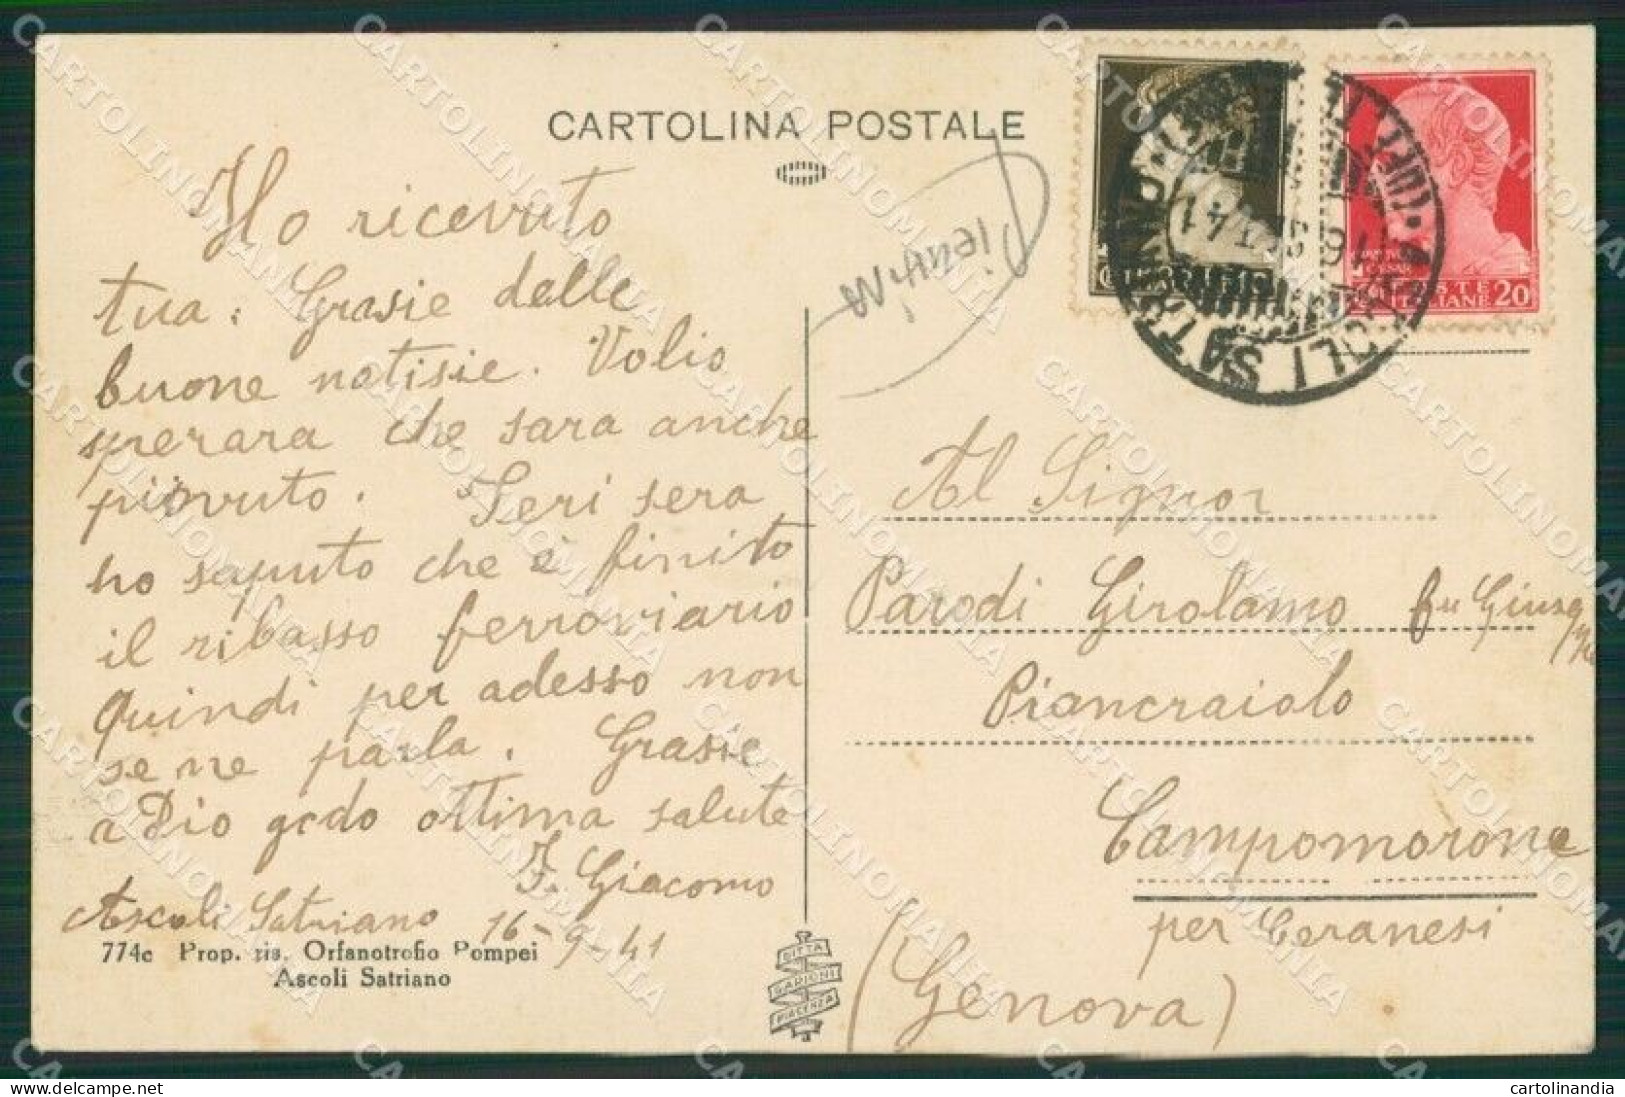 CARTOLINA POSTALE
Ho ricevuto
tua. Grasie delle
buone notisie. Volio
sperara che sara anche
piovuto. Ieri sera
ho saputo che è finito
il ribasso ferroviario
Quindi per adesso non
se ne parla. Grasie
a Dio godo ottima salute
F. Giacomo
Ascoli Satriano 16-9-41
774c Prop. ris. Orfanotrofio Pompei
Ascoli Satriano
DITTA
GARIONI
PIACENZA
POSTE
ITALIANE 20
ASCOLI SATRIANO
Al Signor
Parodi Girolamo fu Giuseppe
Piancraiolo
Campomorone
per Ceranesi
(Genova)
CARTOLINOMANIA
cartolinandia